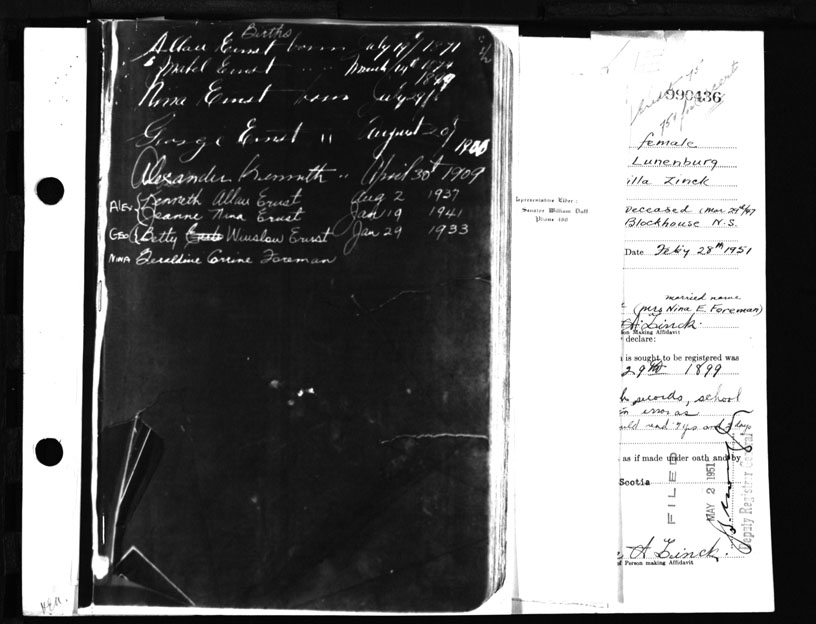 Births
Allau Ernst born July 19th 1871
" Mabel Ernst " " March 14th 1874
1899
Nina Ernst born July 29th
George Ernst " August 20th
1900
Alexander Kenneth " April 30th 1909
Alex. { Kenneth Allan Ernst Aug 2 1937
Jeanne Nina Ernst Jan 19 1941
Geo { Betty Winslow Ernst Jan 29 1933
Nina Geraldine Corrine Foreman
Representative Elder:
Senator William Duff
Phone
990436
female
Lunenburg
illa Zinck
Deceased (Mar 29th/47
Blockhouse N.S.
Date Feby 28th 1951
married name
(Mrs Nina E. Foreman)
A. Zinck.
son Making Affidavit
declare:
is sought to be registered was
29th 1899
records, school
in error as
uld read 7 yrs and days
as if made under oath and by
Scotia
FILED
MAY 2 1951
Deputy Registrar General
A Zinck.
of Person making Affidavit